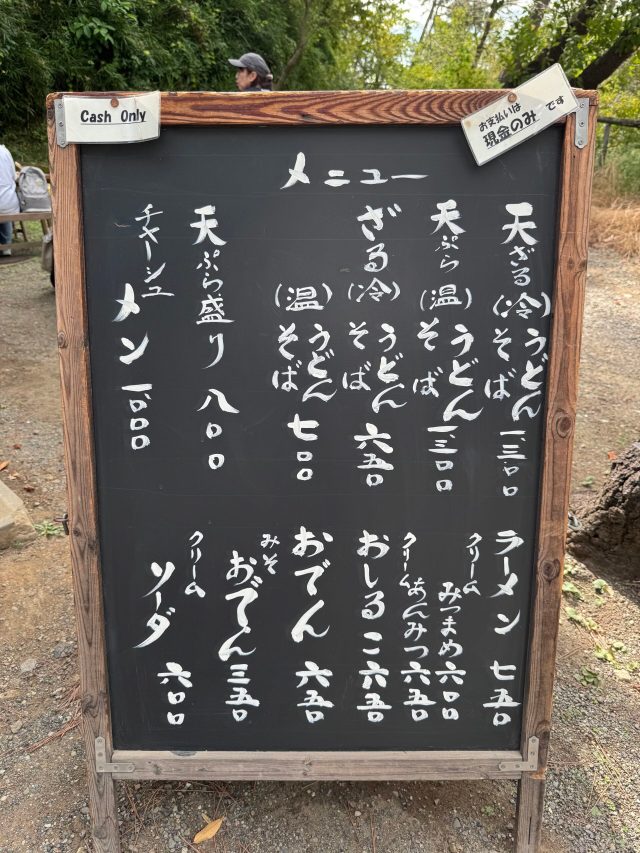 Cash Only
お支払いは
現金のみです
メニュー
天ざる(冷)うどんそば 一、三〇〇
天ぷら(温)うどんそば 一、三〇〇
ざる(冷)うどんそば 六五〇
(温)うどんそば 七〇〇
天ぷら盛り 八〇〇
チャーシュメン 一、〇〇〇
ラーメン 七五〇
クリームみつまめ 六〇〇
クリームあんみつ 六五〇
おしるこ 六五〇
おでん 六五〇
みそおでん 三五〇
クリームソーダ 六〇〇